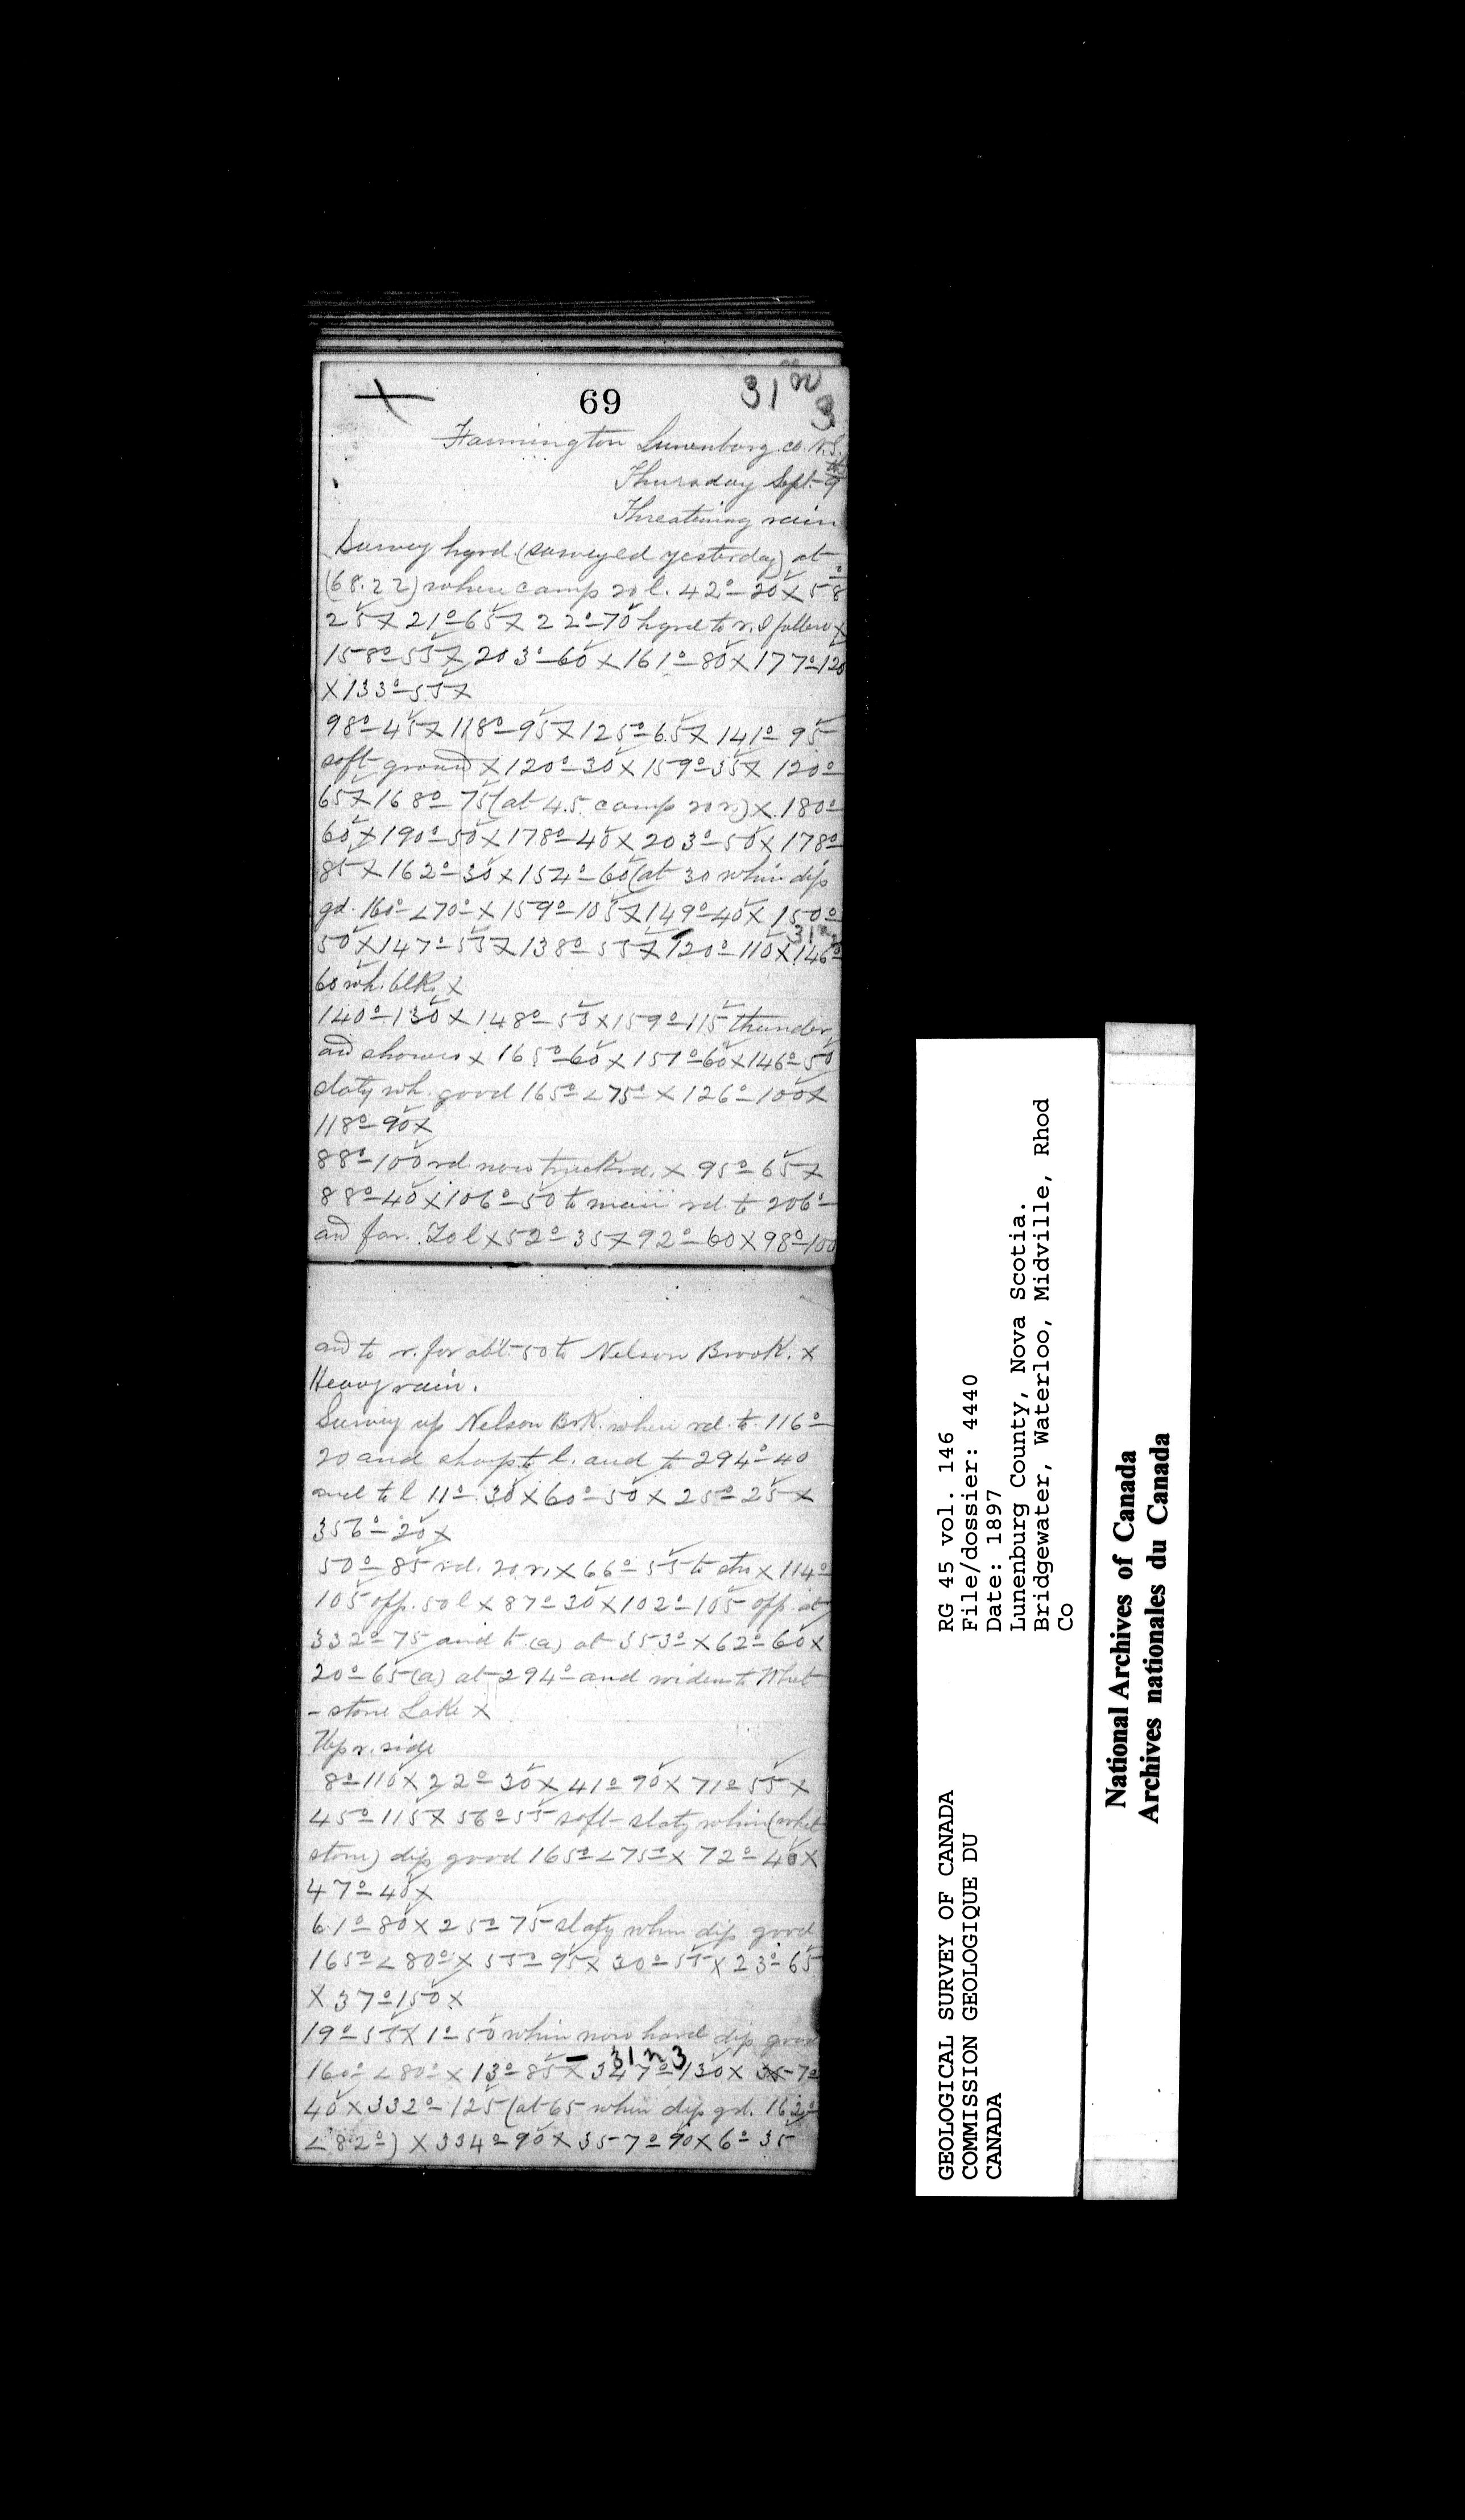 69
31 n
3
Farmington Lunenburg co. N.S.
Thursday Sept 9th
Threatening rain
Survey hyrd (surveyed yesterday) at
(68.22) where camp 20 l. 42°-20 X 58°
25 X 21°-65 X 22°-70 hyrd to r. I follow X
158°-55 X 203°-60 X 161°-80 X 177°-120
X 133°-55 X
98°-45 X 118°-95 X 125°-65 X 141°-95
soft ground X 120°-30 X 159°-35 X 120°
65 X 168°-75 (at 45 camp 20 r.) X 180°
60 X 190°-50 X 178°-40 X 203°-50 X 178°
85 X 162°-30 X 154°-60 (at 30 whin dip
gd. 160° <70° X 159°-105 X 149°-40 X 150°
50 X 147°-55 X 138°-55 X 120°-110 X 146°
60 wh. blk. X
140°-130 X 148°-50 X 159°-115 thunder
and showers X 165°-60 X 157°-60 X 146°-50
slaty wh. good 165° <75° X 126°-100 X
118°-90 X
88°-100 rd. now truck rd. X 95°-65 X
88°-40 X 106°-50 to main rd. to 206°
and for. 20 l X 52°-35 X 92°-60 X 98°-100
and to r. for abt. 50 to Nelson Brook. X
Heavy rain.
Survey up Nelson Brk. where rd. to 116°
20 and sharp to l. and to 294°-40
and to l 11°-30 X 60°-50 X 25°-25 X
356°-20 X
50°-85 rd. 20 r. X 66°-55 to X 114°
105 opp. 50 l X 87°-30 X 102°-105 opp. at
332°-75 and to (a) at 353° X 62°-60 X
20°-65 (a) at 294° and widens to Whet
-stone Lake X
Up r. side
8°-110 X 22°-30 X 41°-90 X 71°-55 X
45°-115 X 56°-55 soft slaty whin (whet
stone) dip good 165° <75° X 72°-40 X
47°-40 X
61°-80 X 25°-75 slaty whin dip good
165° <80° X 55°-95 X 30°-55 X 23°-65
X 37°-150 X
19°-55 X 1°-50 whin now hard dip good
31 n 3
160° <80° X 13°-85 X 347°-130 X 357°
40 X 332°-125 (at 65 whin dip gd. 162°
<82°) X 334°-90 X 357°-90 X 6°-35
GEOLOGICAL SURVEY OF CANADA
COMMISSION GEOLOGIQUE DU
CANADA
RG 45 vol. 146
File/dossier: 4440
Date: 1897
Lunenburg County, Nova Scotia.
Bridgewater, Waterloo, Midville, Rhod
Co
National Archives of Canada
Archives nationales du Canada